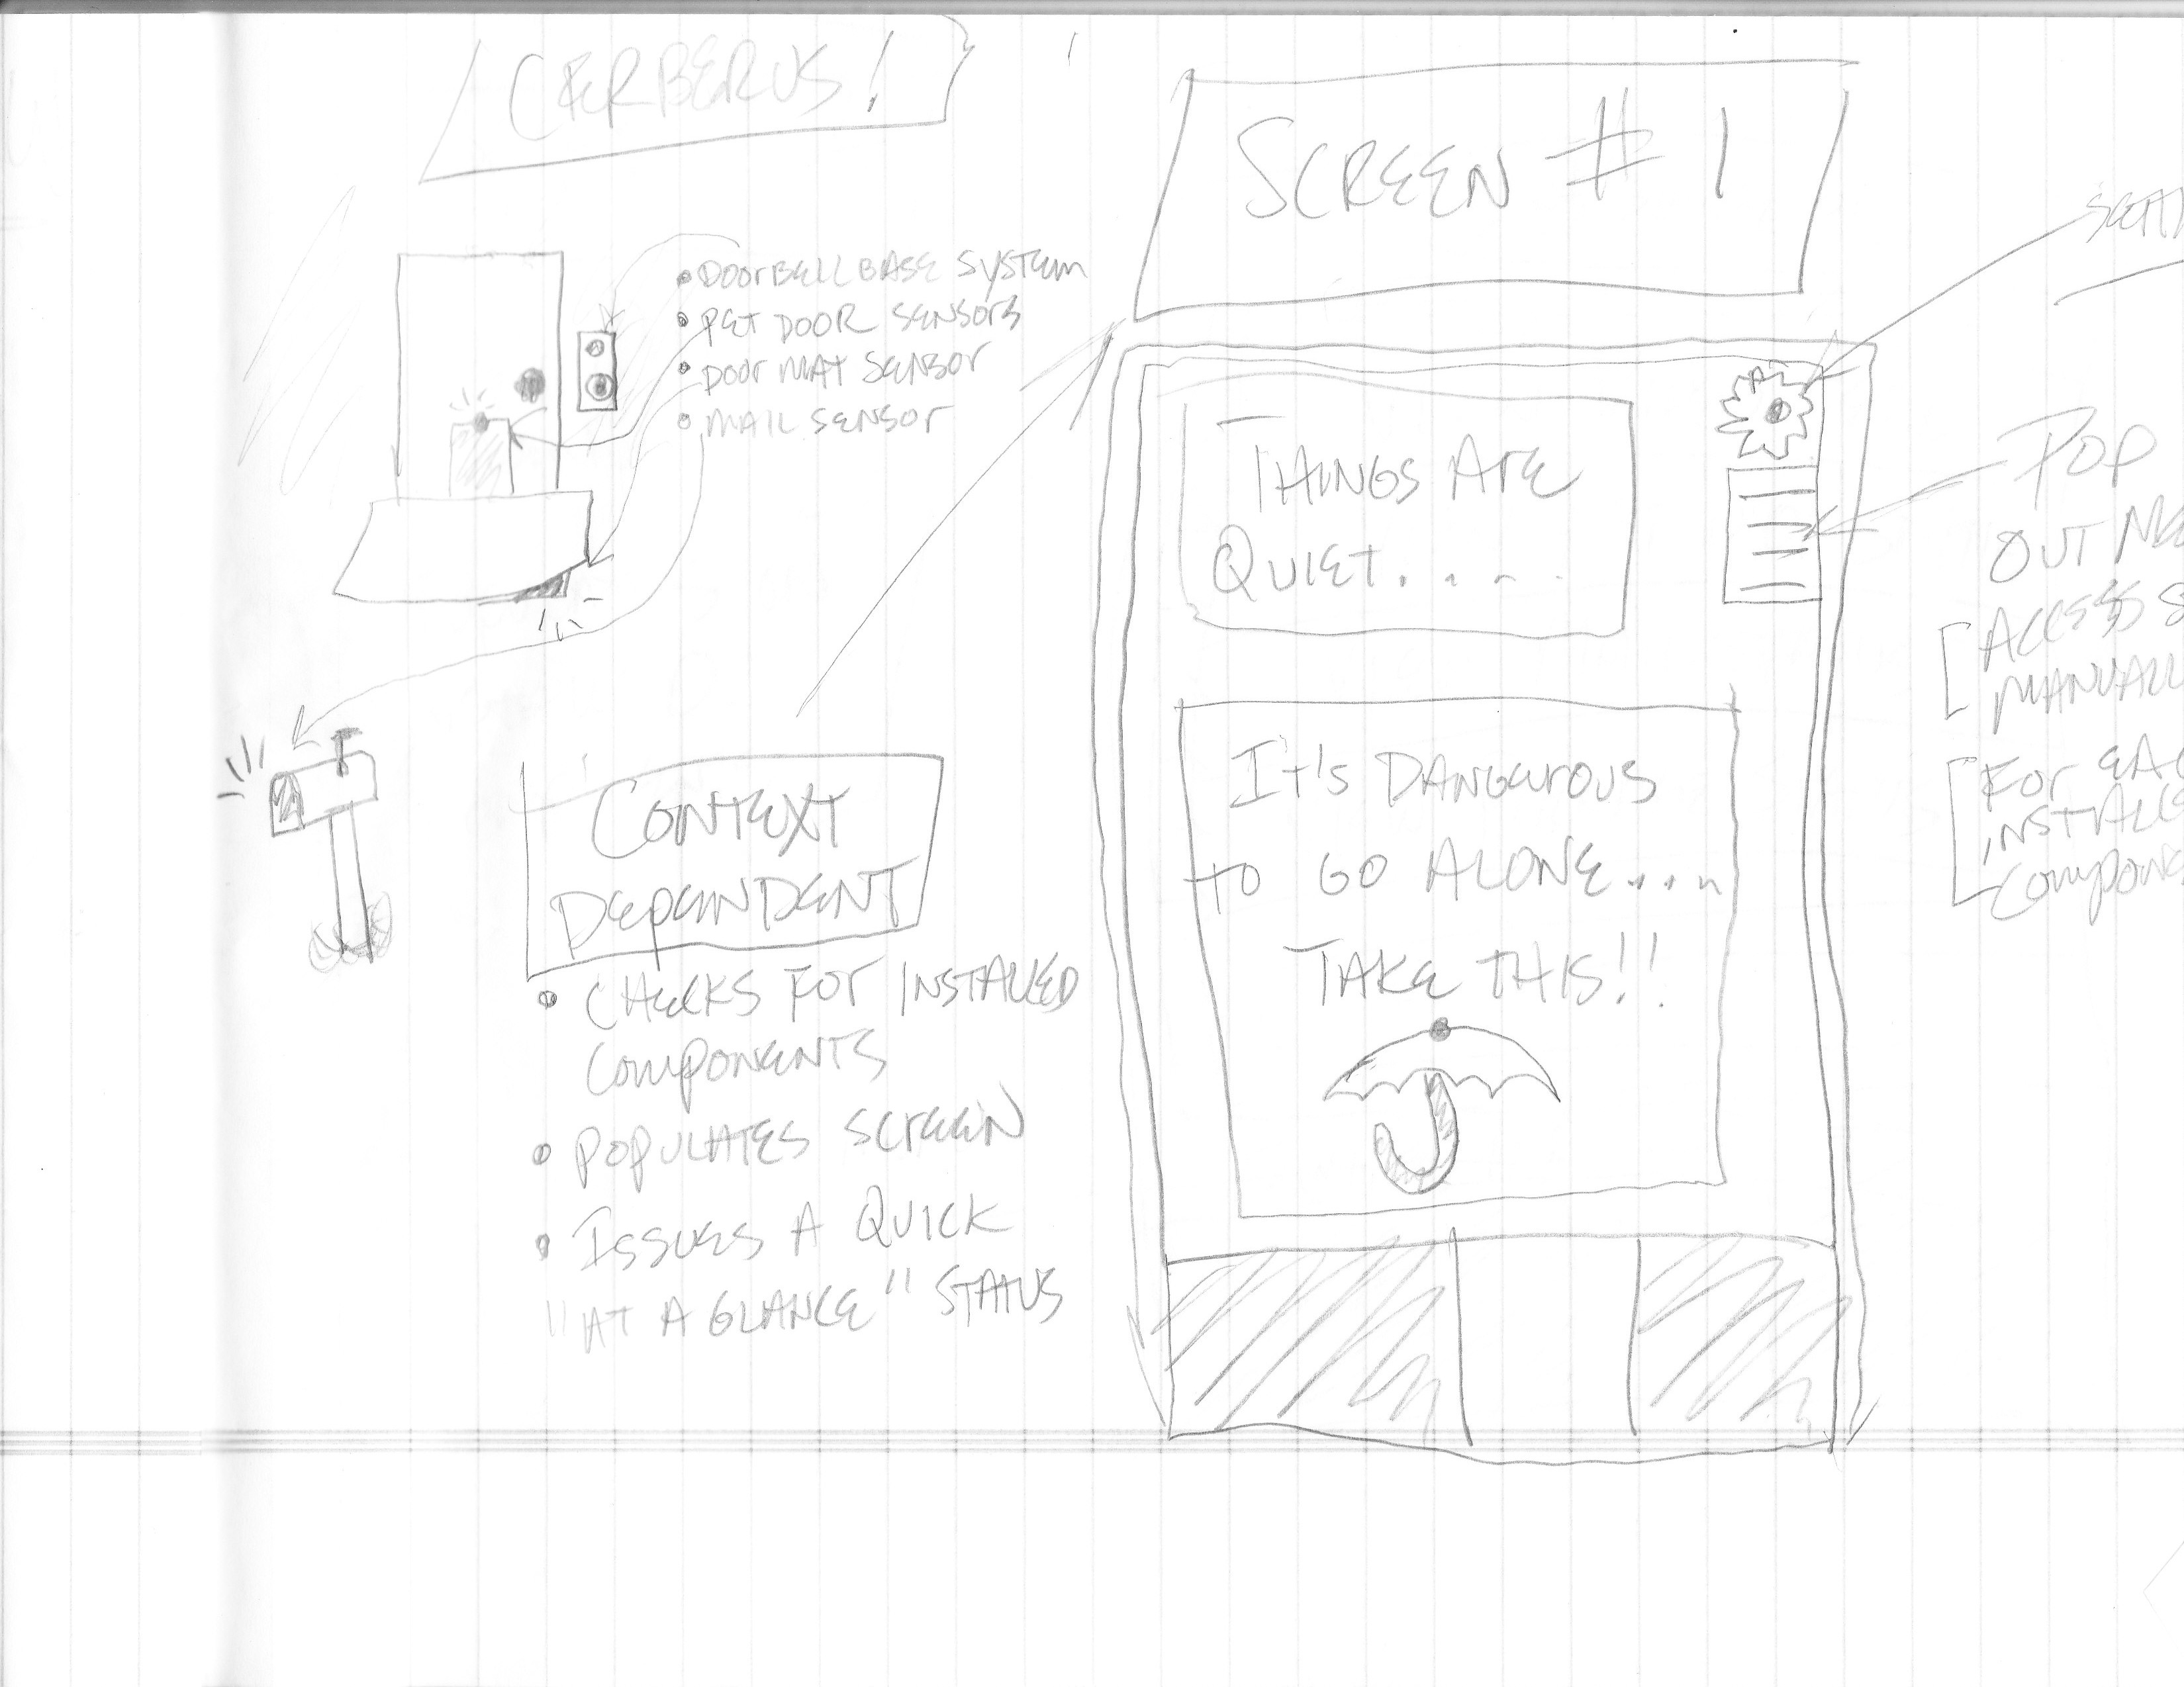 CERBERUS!
• DOORBELL BASE SYSTEM
• PET DOOR SENSORS
• DOOR MAT SENSOR
• MAIL SENSOR
CONTEXT
DEPENDENT
• CHECKS FOR INSTALLED
COMPONENTS
• POPULATES SCREEN
• ISSUES A QUICK
"AT A GLANCE" STATUS
SCREEN # 1
THINGS ARE
QUIET.....
IT'S DANGEROUS
TO GO ALONE....
TAKE THIS!!
POP
OUT
ACCESS
FOR